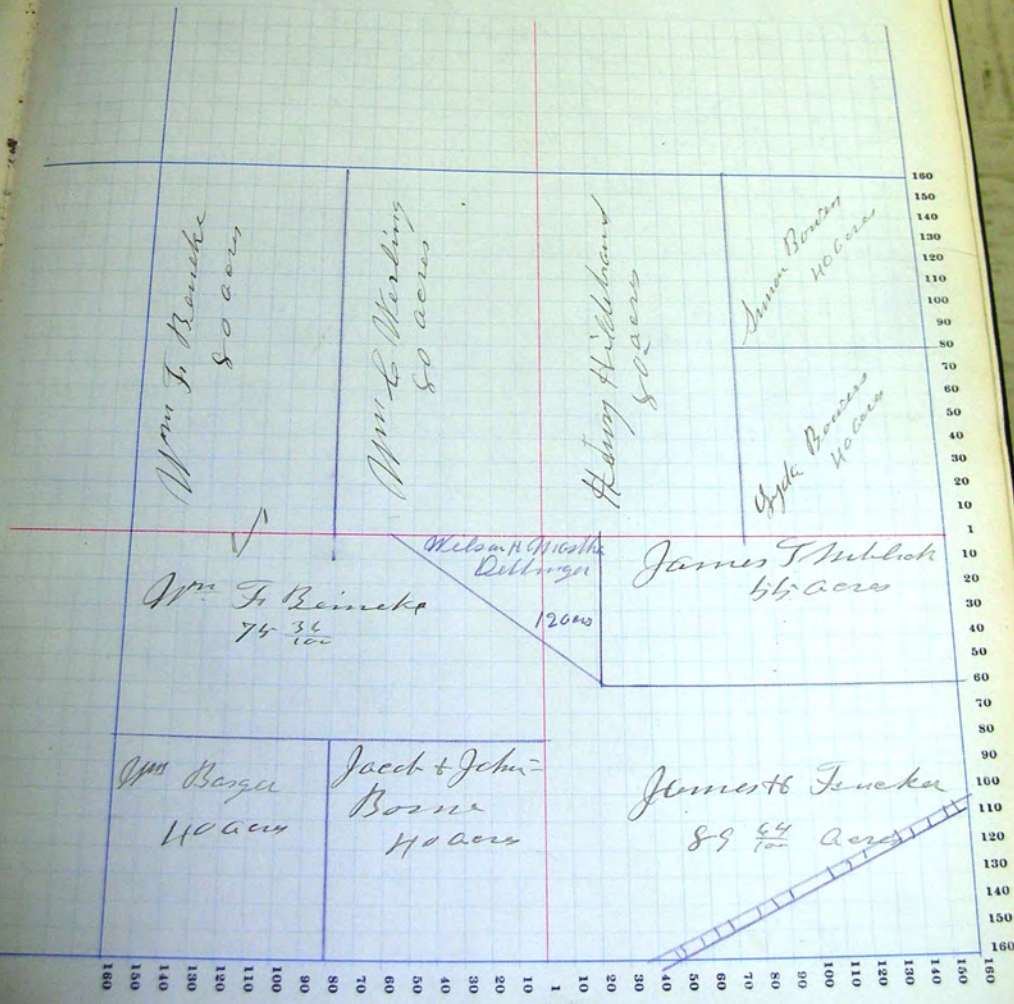 Wm F. Beineke
80 acres
Wm C. Werling
80 acres
Henry Hildebrand
80 acres
Simon Bowers
40 acres
Lyda Bowers
40 acres
Wm F. Beineke
75 36/100
Wilson H Martha
Dettinger
12 acres
James T
55 acres
Wm Barger
40 acres
Jacob & John
40 acres
James H
89 64/100 acres
160
150
140
130
120
110
100
90
80
70
60
50
40
30
20
10
1
10
20
30
40
50
60
70
80
90
100
110
120
130
140
150
160
160 150 140 130 120 110 100 90 80 70 60 50 40 30 20 10 1 10 20 30 40 50 60 70 80 90 100 110 120 130 140 150 160